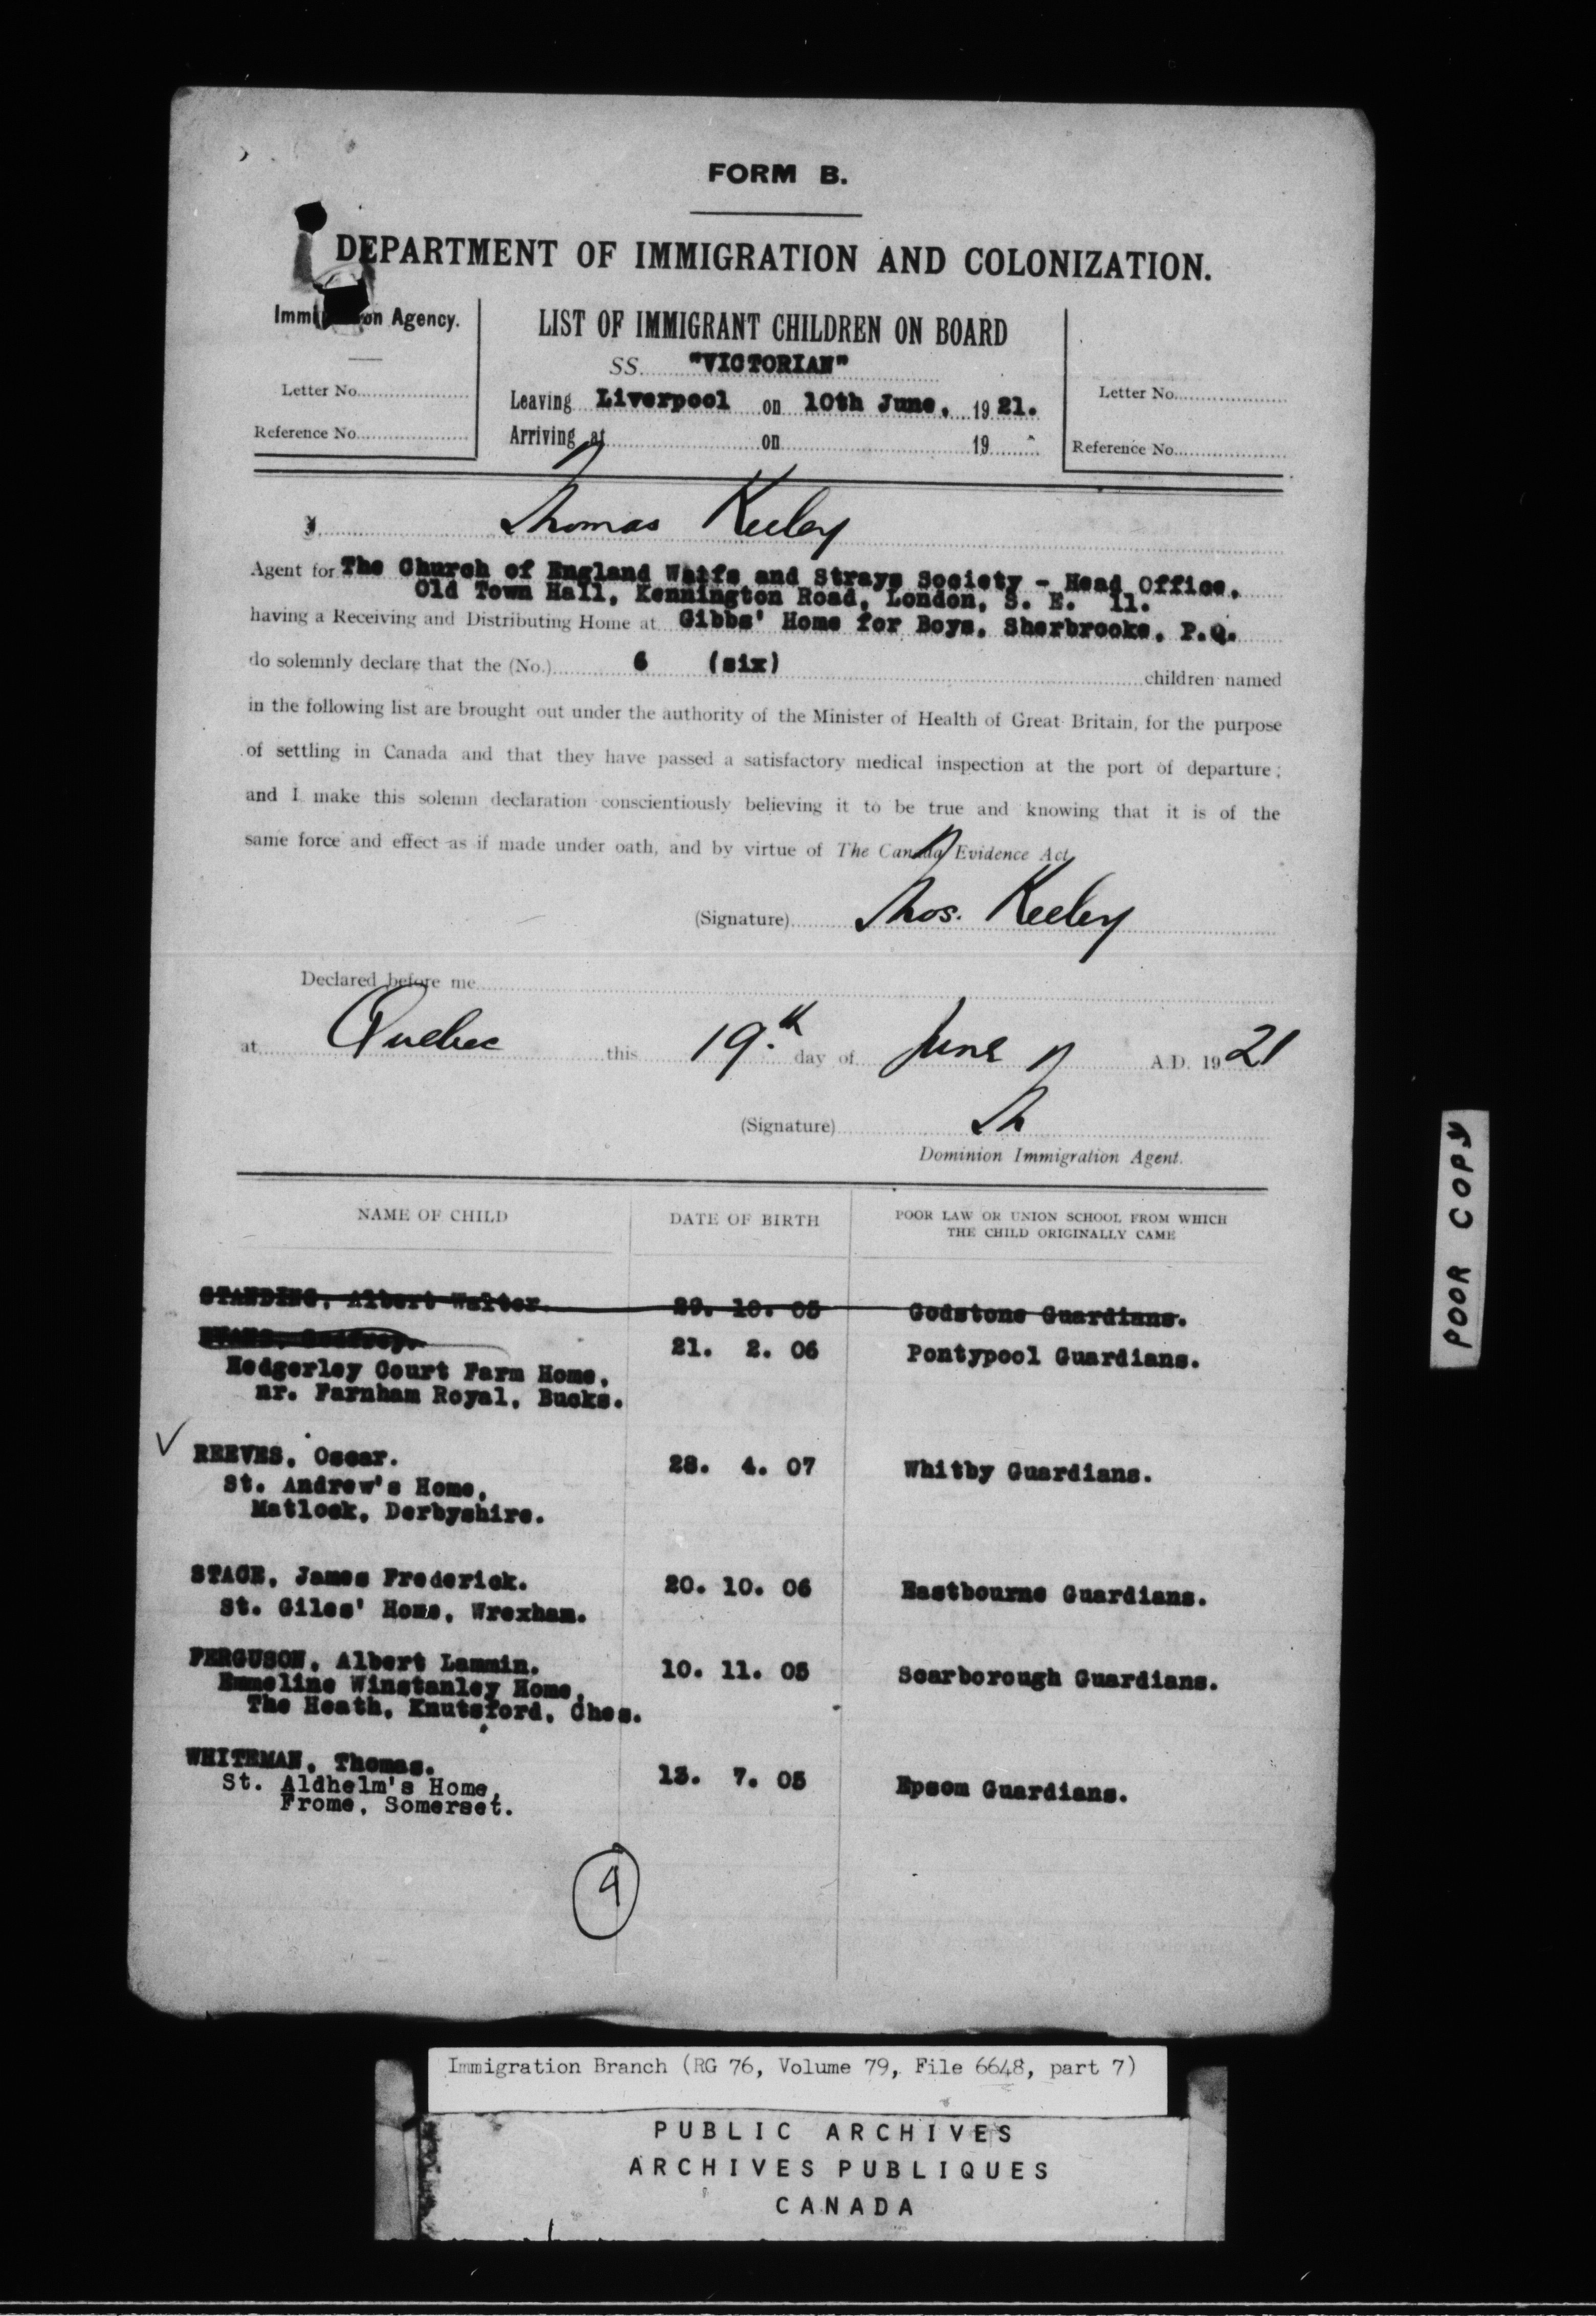 FORM B.
DEPARTMENT OF IMMIGRATION AND COLONIZATION.
Immi on Agency.
Letter No.
Reference No.
LIST OF IMMIGRANT CHILDREN ON BOARD
SS. "VICTORIAN"
Leaving Liverpool on 10th June, 1921.
Arriving at on 19
Letter No.
Reference No.
Thomas Keeley
Agent for The Church of England Waifs and Strays Society - Head Office,
Old Town Hall, Kennington Road, London, S. E. 11.
having a Receiving and Distributing Home at Gibbs' Home for Boys, Sherbrooke, P.Q.
do solemnly declare that the (No.) 6 (six) children named
in the following list are brought out under the authority of the Minister of Health of Great Britain, for the purpose
of settling in Canada and that they have passed a satisfactory medical inspection at the port of departure;
and I make this solemn declaration conscientiously believing it to be true and knowing that it is of the
same force and effect as if made under oath, and by virtue of The Canada Evidence Act
(Signature) Thos. Keeley
Declared before me
at Quebec this 19th day of June A.D. 1921
(Signature)
Dominion Immigration Agent.
NAME OF CHILD DATE OF BIRTH POOR LAW OR UNION SCHOOL FROM WHICH
THE CHILD ORIGINALLY CAME
STANDING, Albert Walter. 29. 10. 05 Godstone Guardians.
21. 2. 06 Pontypool Guardians.
Hedgerley Court Farm Home,
nr. Farnham Royal, Bucks.
REEVES, Oscar. 28. 4. 07 Whitby Guardians.
St. Andrew's Home,
Matlock, Derbyshire.
STACE, James Frederick. 20. 10. 06 Eastbourne Guardians.
St. Giles' Home, Wrexham.
FERGUSON, Albert Lammin. 10. 11. 05 Scarborough Guardians.
Emmeline Winstanley Home,
The Heath, Knutsford, Ches.
WHITEMAN, Thomas. 13. 7. 05 Epsom Guardians.
St. Aldhelm's Home,
Frome, Somerset.
POOR COPY
Immigration Branch (RG 76, Volume 79, File 6648, part 7)
PUBLIC ARCHIVES
ARCHIVES PUBLIQUES
CANADA